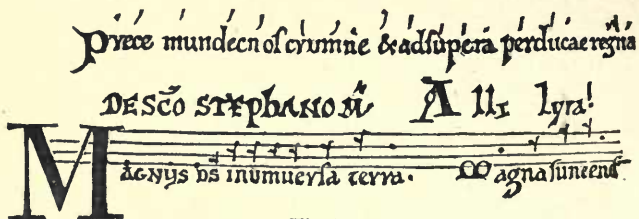 prece mundet nos crimine & ad supera perducat regna
DE SCO STEPHANO M̃ A llI lyra!
MAGNUS DS in uniuersa terra. Magna sunt eni